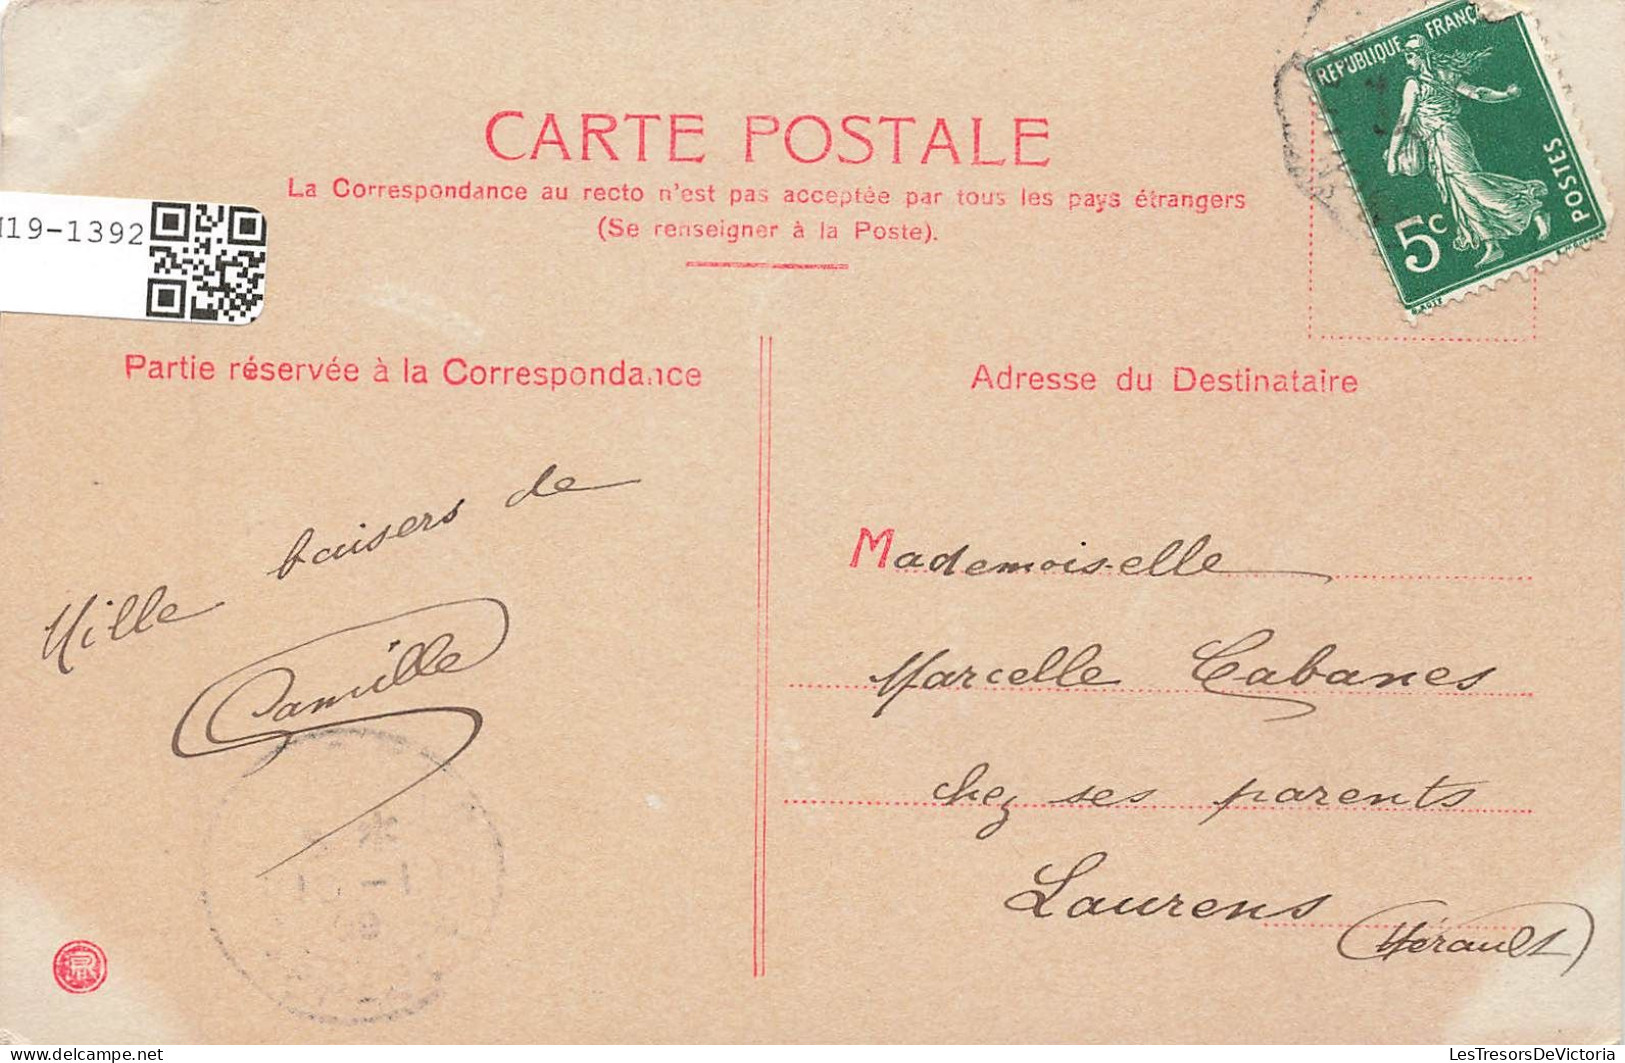 REPUBLIQUE FRANÇ
POSTES
5c
CARTE POSTALE
La Correspondance au recto n'est pas acceptée par tous les pays étrangers
(Se renseigner à la Poste).
19-1392
Partie réservée à la Correspondance
Adresse du Destinataire
Mille baisers de
Camille
Mademoiselle
Marcelle Cabanes
chez ses parents
Laurens (Hérault)
delcampe.net
LesTresorsDeVictoria